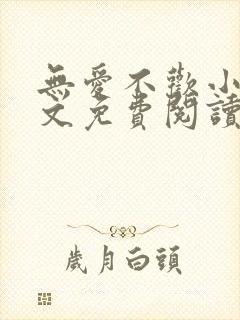 無愛不歡小
文免費閱讀
歲月白頭